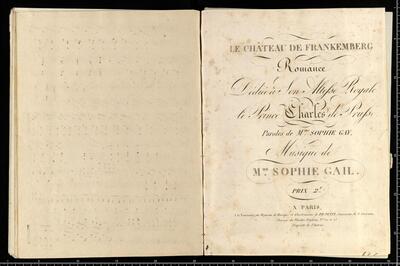 LE CHÂTEAU DE FRANKEMBERG
Romance
Dédiée à Son Altesse Royale
le Prince Charles de Prusse
Paroles de Mme SOPHIE GAY,
Musique de
Mme SOPHIE GAIL.
PRIX 2f
A PARIS
Propriété de l'Auteur